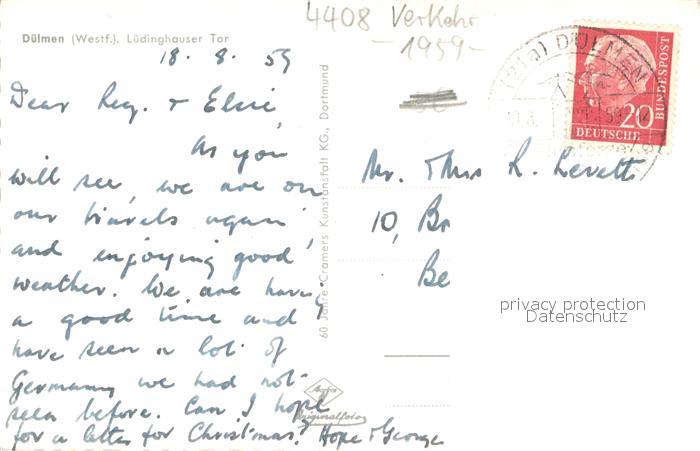 4408 Verkehr
- 1959 -
Dülmen (Westf.). Lüdinghauser Tor
18. 8. 59
Dear Reg. & Elsie,
As you
will see, we are on
our travels again,
and enjoying good
weather. We are having
a good time and
have seen a lot of
Germany we had not
seen before. Can I hope
for a letter for Christmas? Hope & George
60 Jahre Cramers Kunstanstalt KG., Dortmund
Originalfoto
(21a) DÜLMEN
20
DEUTSCHE
BUNDESPOST
Mr. & Mrs R. Levett
10, Br
Be
privacy protection
Datenschutz